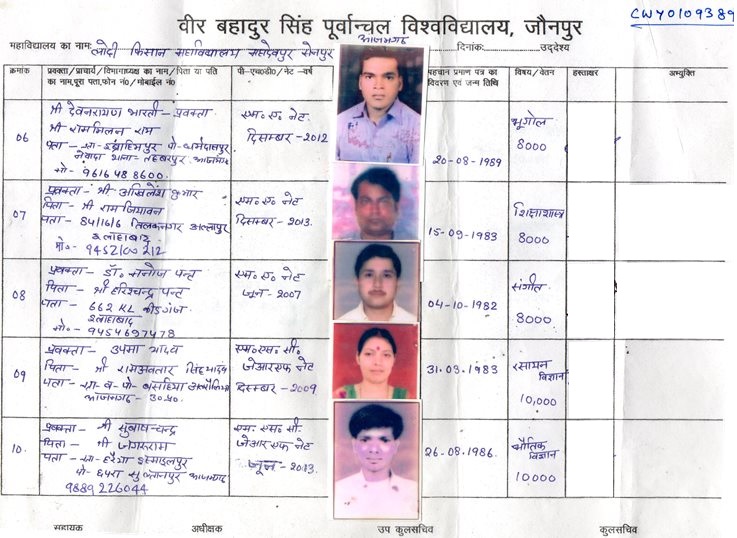 CWY0109389
वीर बहादुर सिंह पूर्वान्चल विश्वविद्यालय, जौनपुर
महाविद्यालय का नाम: मोदी किसान महाविद्यालय सहदेवपुर सेनपुर आजमगढ़ दिनांक:............उद्देश्य
क्रमांक प्रवक्ता / प्राचार्य / विभागाध्यक्ष का नाम / पिता या पति का नाम, पूरा पता, फोन नं0 / मोबाईल नं0 पी-एच0डी0 / नेट -वर्ष पहचान प्रमाण पत्र का विवरण एवं जन्म तिथि विषय / वेतन हस्ताक्षर अभ्युक्ति
06 श्री देवनरायण भारती - प्रवक्ता एम० ए० नेट भूगोल
श्री राममिलन राम दिसम्बर - 2012 8000
पता - ग्रा- इब्राहिमपुर पो- धर्मदासपुर
थाना- तहबरपुर आजमगढ़ 20-08-1989
मो०- 9616488600
07 प्रवक्ता - श्री अखिलेश कुमार एम० ए० नेट शिक्षाशास्त्र
पिता - श्री रामजियावन दिसम्बर - 2013. 15-09-1983 8000
पता - 84/16/6 तिलकनगर अल्लापुर
इलाहाबाद
मो०- 9452100212
08 प्रवक्ता - डॉ० मनोज पन्त एम० ए० नेट संगीत
पिता - श्री हरिश्चन्द्र पन्त जून - 2007 04-10-1982 8000
पता - 662 KL कीडगंज
इलाहाबाद
मो०- 9454697478
09 प्रवक्ता - उपमा यादव एम० एस० सी० रसायन विज्ञान
पिता - श्री रामअवतार सिंह यादव जेआरएफ नेट 31-03-1983
पता - ग्रा० व० पो- दिसम्बर - 2009 10,000
आजमगढ़ - उ०प्र०
10. प्रवक्ता - श्री सुबाषचन्द्र एम० एस० सी० भौतिक विज्ञान
पिता - श्री जंगरूराम जेआरएफ नेट 26-08-1986. 10000
पता - ग्रा- इस्माइलपुर जून - 2013.
पो- सुल्तानपुर आजमगढ़
9889226044
सहायक अधीक्षक उप कुलसचिव कुलसचिव